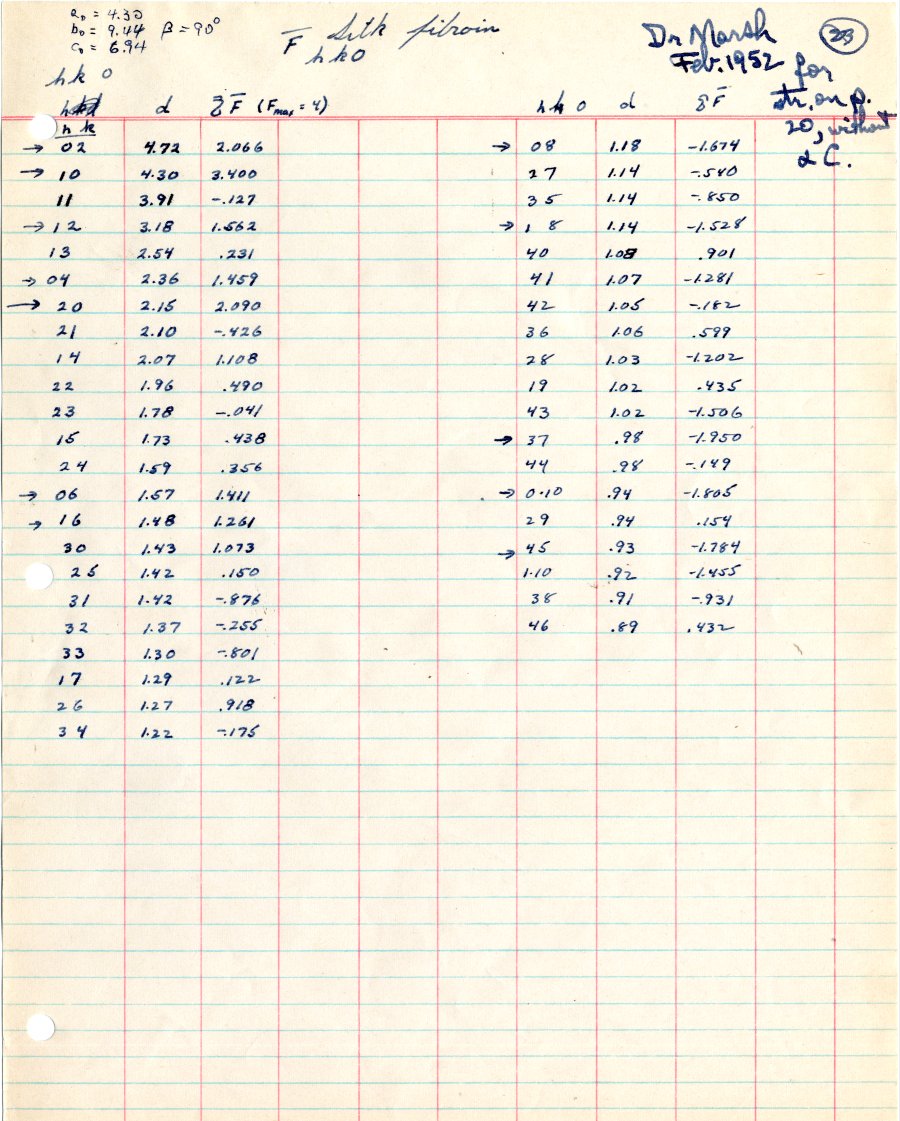 a₀ = 4.30
b₀ = 9.44 β = 90°
c₀ = 6.94
F̅ Silk fibroin
hk0
Dr Marsh
Feb. 1952
203
for
str. on p.
20, without
α C.
hk0
d ξ F̅ (Fmax = 4)
h k
hk0 d ξ F̅
→ 02 4.72 2.066
→ 10 4.30 3.400
11 3.91 -.127
→ 12 3.18 1.562
13 2.54 .231
→ 04 2.36 1.459
→ 20 2.15 2.090
21 2.10 -.426
14 2.07 1.108
22 1.96 .490
23 1.78 -.041
15 1.73 .438
24 1.59 .356
→ 06 1.57 1.411
→ 16 1.48 1.261
30 1.43 1.073
25 1.42 .150
31 1.42 -.876
32 1.37 -.255
33 1.30 -.801
17 1.29 .122
26 1.27 .918
34 1.22 -.175
→ 08 1.18 -1.674
27 1.14 -.540
35 1.14 -.850
→ 18 1.14 -1.528
40 1.08 .901
41 1.07 -1.281
42 1.05 -.182
36 1.06 .599
28 1.03 -1.202
19 1.02 .435
43 1.02 -1.506
→ 37 .98 -1.950
44 .98 -.149
→ 0·10 .94 -1.805
29 .94 .154
→ 45 .93 -1.784
1·10 .92 -1.455
38 .91 -.931
46 .89 .432